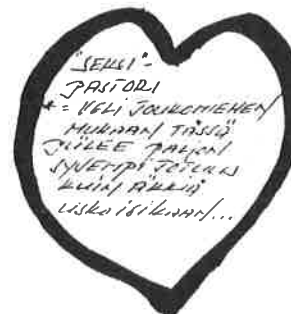 "SEKSI"-
PASTORI
* = VELI JOUKOMIEHEN
MUKAAN TÄSSÄ
PIILEE PALJON
SYVEMPI TOTUUS
KUIN ÄKKIÄ
USKOISIKAAN...